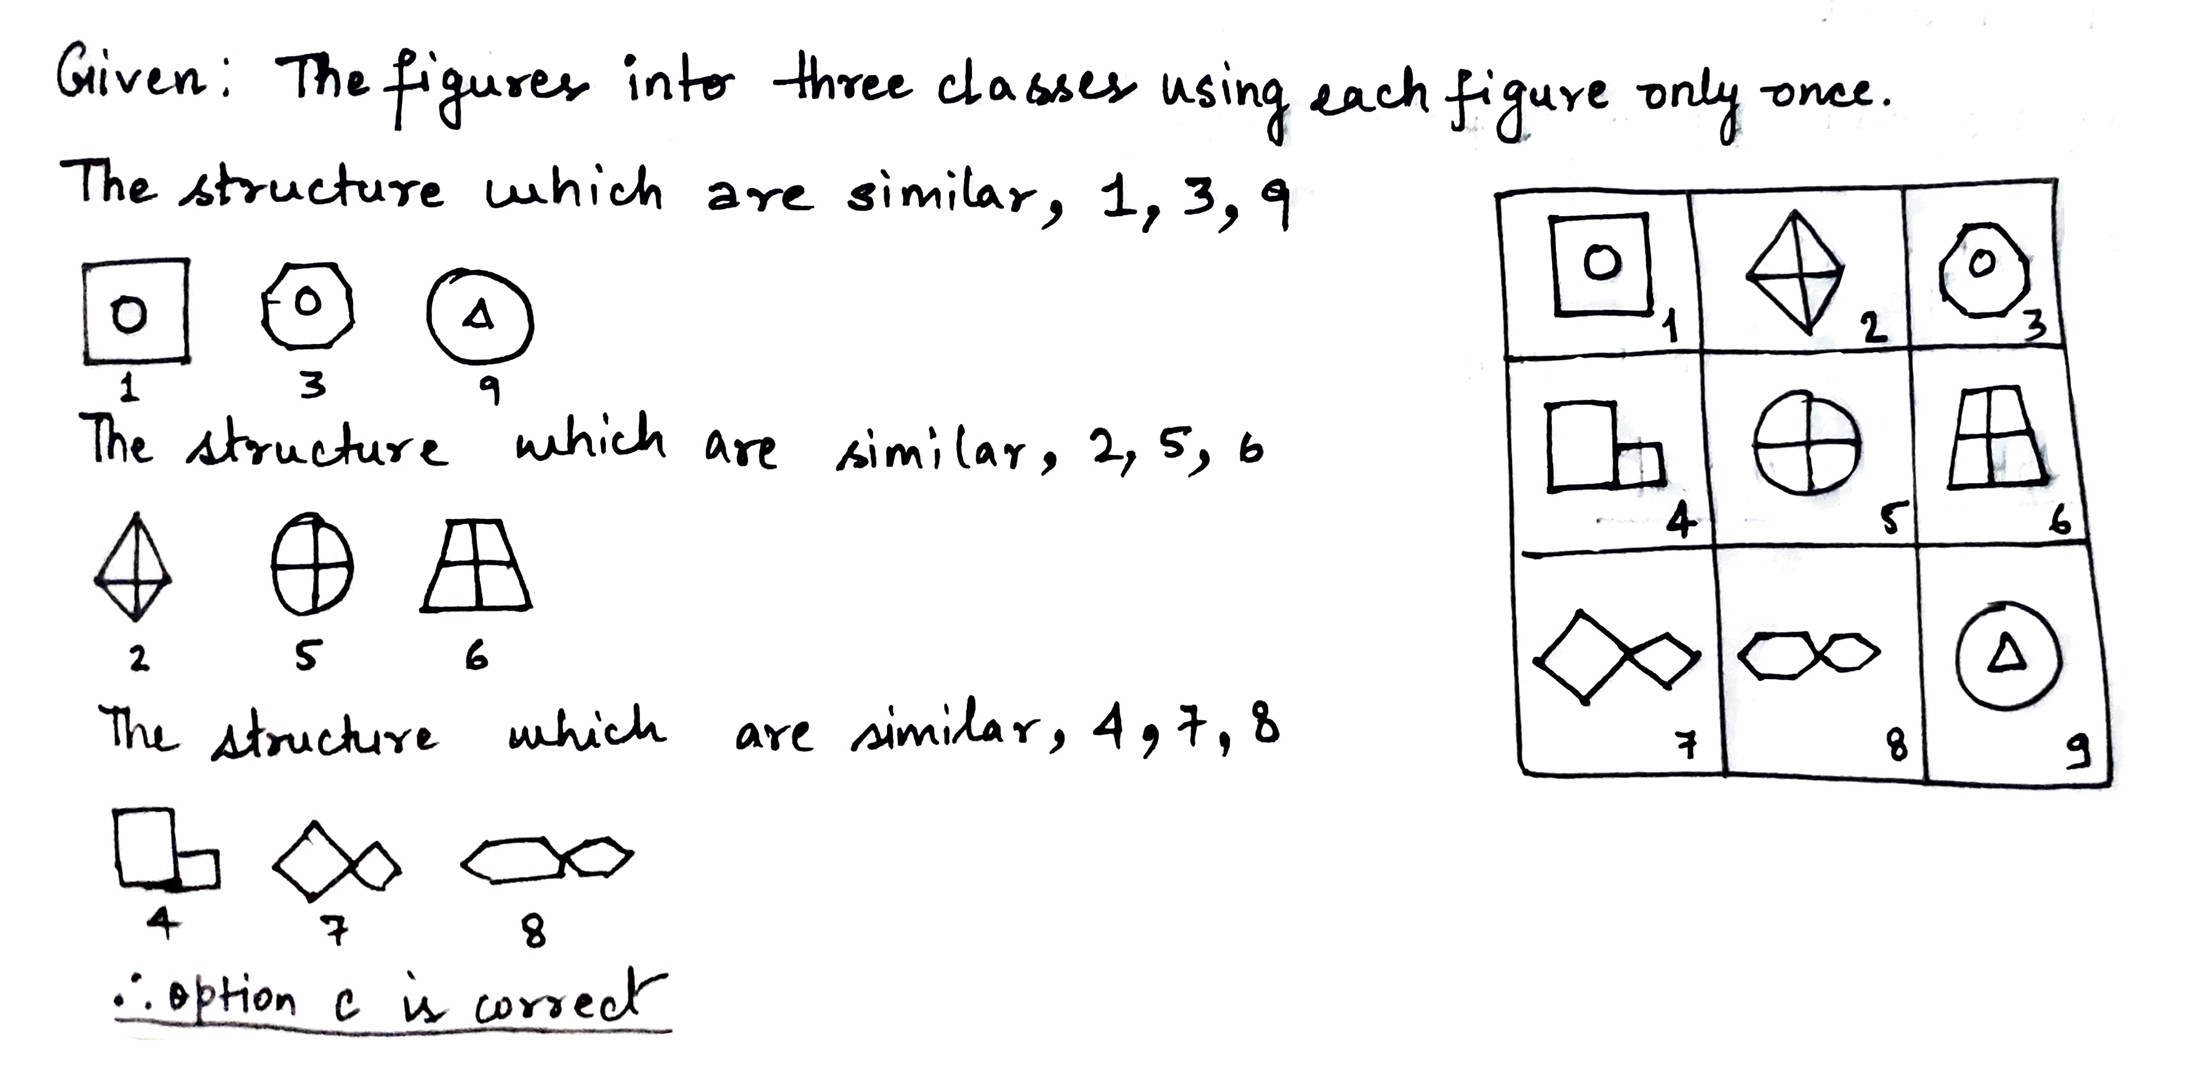 Given: The figures into three classes using each figure only once.
The structure which are similar, 1, 3, 9
1 3 9
The structure which are similar, 2, 5, 6
2 5 6
The structure which are similar, 4, 7, 8
4 7 8
∴ option c is correct
1 2 3
4 5 6
7 8 9